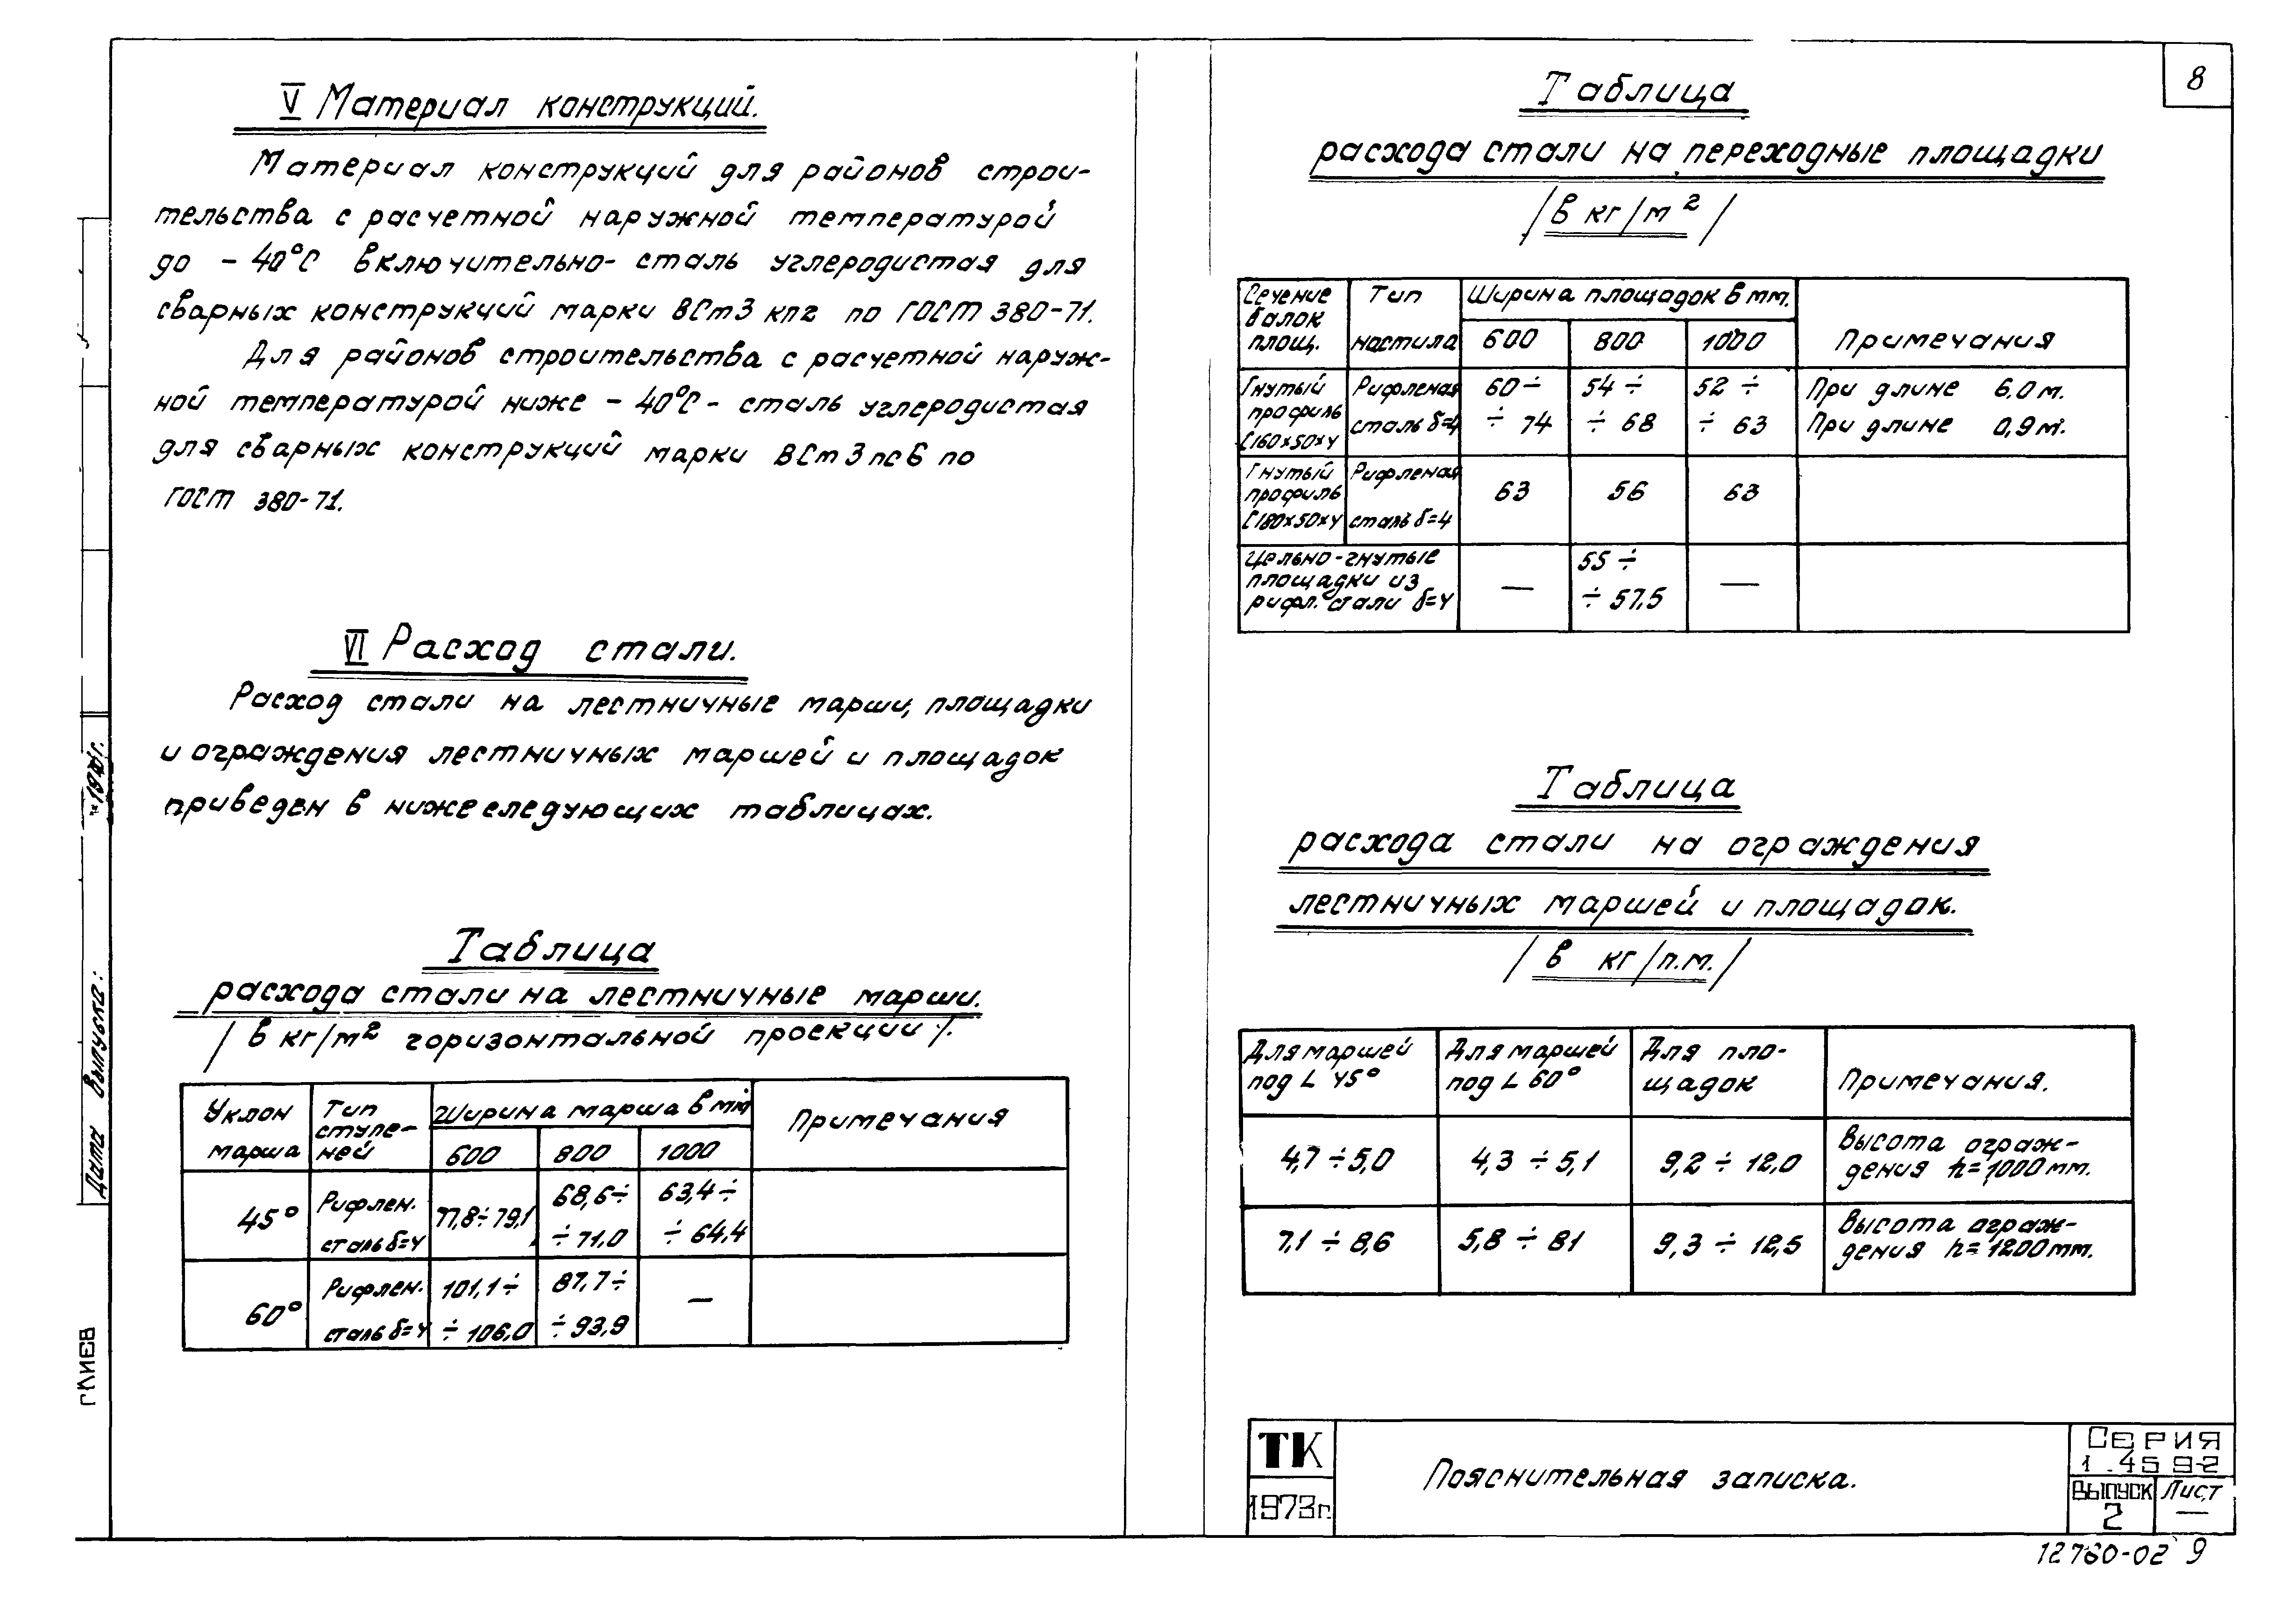 8
V Материал конструкций.
Материал конструкций для районов строи-
тельства с расчетной наружной температурой
до - 40°С включительно- сталь углеродистая для
сварных конструкций марки ВСт3 кп2 по ГОСТ 380-71.
Для районов строительства с расчетной наруж-
ной температурой ниже - 40°С - сталь углеродистая
для сварных конструкций марки ВСт3пс6 по
ГОСТ 380-71.
VI Расход стали.
Расход стали на лестничные марши, площадки
и ограждения лестничных маршей и площадок
приведен в нижеследующих таблицах.
Таблица
расхода стали на лестничные марши.
/ в кг/м² горизонтальной проекции /.
Уклон марша | Тип ступе-ней | Ширина марша в мм | Примечания
600 | 800 | 1000
45° | Рифлен. сталь δ=4 | 77,8÷79,1 | 68,6÷ ÷71,0 | 63,4÷ ÷64,4
60° | Рифлен. сталь δ=4 | 101,1÷ ÷106,0 | 87,7÷ ÷93,9 | —
Таблица
расхода стали на переходные площадки
/ в кг/м² /
Сечение балок площ. | Тип настила | Ширина площадок в мм. | Примечания
600 | 800 | 1000
Гнутый профиль [160×50×4 | Рифленая сталь δ=4 | 60÷ ÷74 | 54÷ ÷68 | 52÷ ÷63 | При длине 6,0м. При длине 0,9м.
Гнутый профиль [180×50×4 | Рифленая сталь δ=4 | 63 | 56 | 63
Цельно-гнутые площадки из рифл. стали δ=4 | — | 55÷ ÷57,5 | —
Таблица
расхода стали на ограждения
лестничных маршей и площадок.
/ в кг/п.м. /
Для маршей под ∠ 45° | Для маршей под ∠ 60° | Для пло-щадок | Примечания.
4,7÷5,0 | 4,3÷5,1 | 9,2÷12,0 | Высота ограж-дения h=1000мм.
7,1÷8,6 | 5,8÷81 | 9,3÷12,5 | Высота ограж-дения h=1200мм.
ТК
1973г.
Пояснительная записка.
Серия
1.459-2
Выпуск
2
Лист
—
12760-02 9
Дата выпуска: